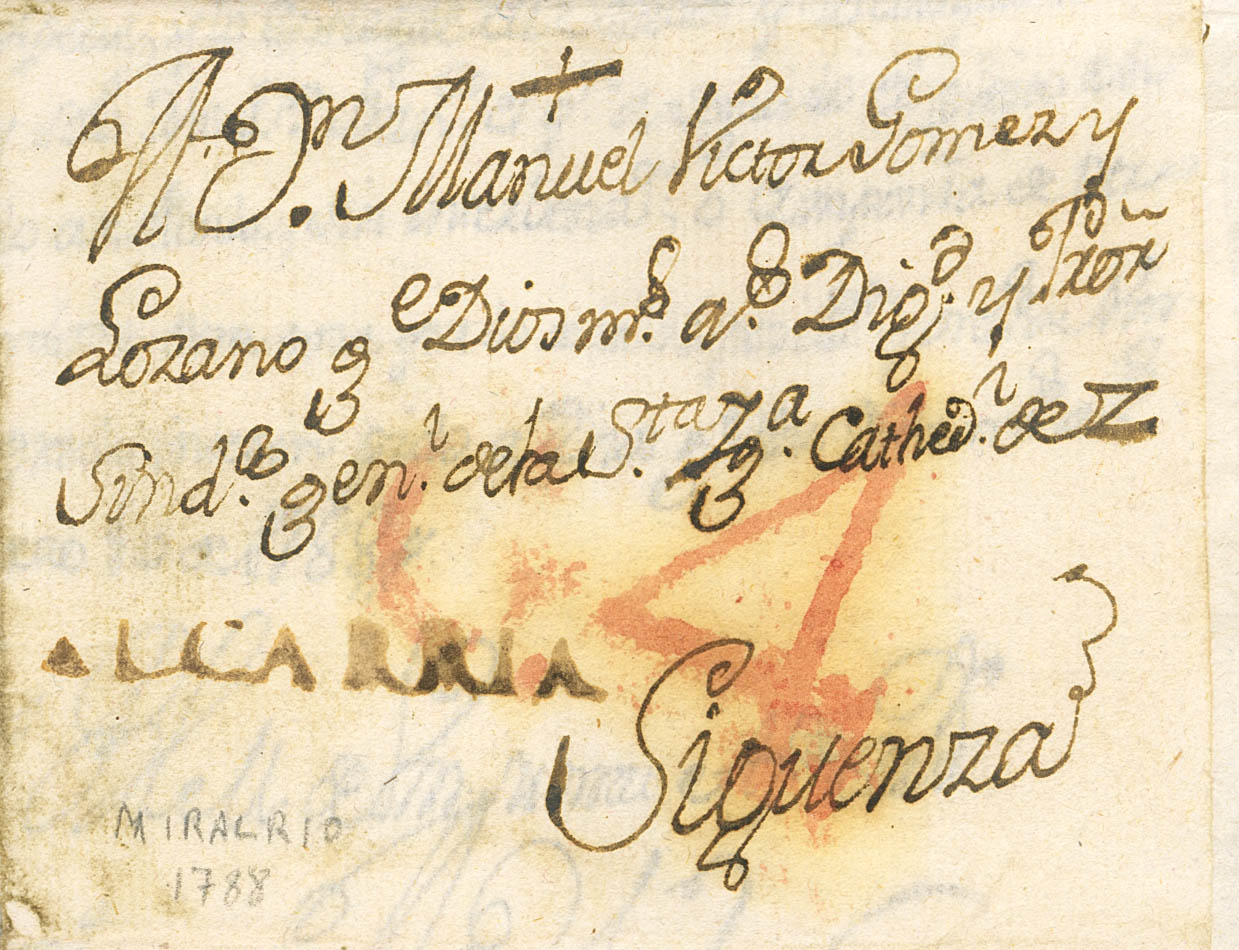 +
A D.n Manuel Victor Gomez y
Lozano g.e Dios m.s a.s Dig.d y Thõr
Sind.co gen.l dela S.ta Yg.a Cathed.l de Z
4
ALCARRIA
Siguenza
MIRALRIO
1788